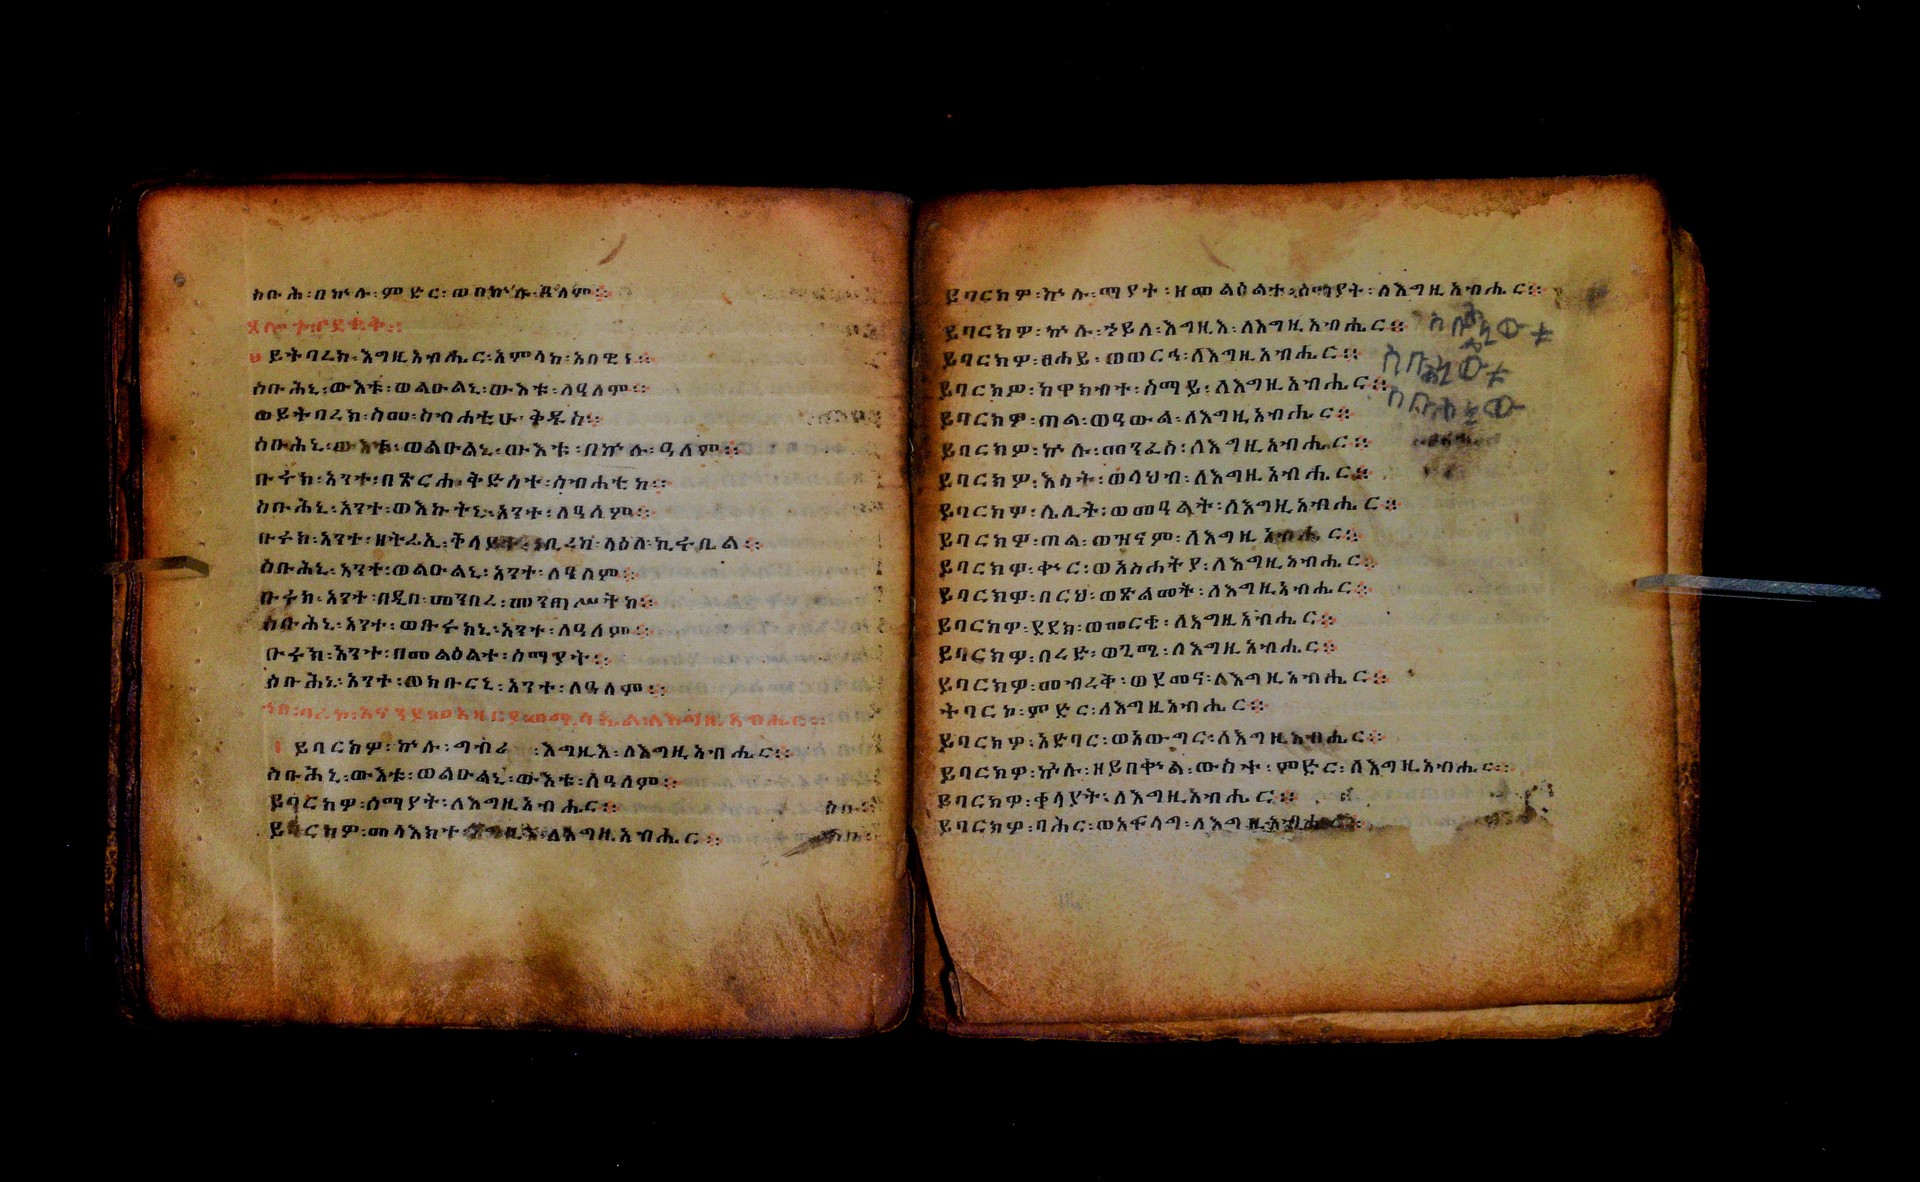 ስቡሕ፡በኵሉ፡ምድር፡ወበኵሉ፡ዓለም።
ጸሎተ፡፫ደቂቅ።
ይትባረክ፡እግዚአብሔር፡አምላከ፡አበዊነ።
ስቡሕኒ፡ውእቱ፡ወልዑልኒ፡ውእቱ፡ለዓለም።
ወይትባረክ፡ስመ፡ስብሐቲሁ፡ቅዱስ።
ስቡሕኒ፡ውእቱ፡ወልዑልኒ፡ውእቱ፡በኵሉ፡ዓለም።
ቡሩክ፡አንተ፡በጽርሐ፡ቅድሰተ፡ስብሐቲከ።
ስቡሕኒ፡አንተ፡ወእኩትኒ፡አንተ፡ለዓለም።
ቡሩክ፡አንተ፡ዘትሬኢ፡ቀላያተ፡ትነብር፡ላዕለ፡ኪሩቤል።
ስቡሕኒ፡አንተ፡ወልዑልኒ፡አንተ፡ለዓለም።
ቡሩክ፡አንተ፡በዲበ፡መንበረ፡መንግሥትከ።
ስቡሕኒ፡አንተ፡ወቡሩክኒ፡አንተ፡ለዓለም።
ቡሩክ፡አንተ፡በመልዕልተ፡ሰማያት።
ስቡሕኒ፡አንተ፡ወክቡርኒ፡አንተ፡ለዓለም።
ይባርክዎ፡ኵሉ፡ግብረ፡እግዚእ፡ለእግዚአብሔር።
ስቡሕኒ፡ውእቱ፡ወልዑልኒ፡ውእቱ፡ለዓለም።
ይባርክዎ፡ሰማያት፡ለእግዚአብሔር። ስቡ።
ይባርክዎ፡መላእክተ፡እግዚእ፡ለእግዚአብሔር። ስቡ።
ይባርክዎ፡ኵሉ፡ማያት፡ዘመልዕልተ፡ሰማያት፡ለእግዚአብሔር።
ይባርክዎ፡ኵሉ፡ኃይለ፡እግዚእ፡ለእግዚአብሔር።
ይባርክዎ፡ፀሐይ፡ወወርኅ፡ለእግዚአብሔር።
ይባርክዎ፡ከዋክብተ፡ሰማይ፡ለእግዚአብሔር።
ይባርክዎ፡ጠል፡ወዓውል፡ለእግዚአብሔር።
ይባርክዎ፡ኵሉ፡መንፈስ፡ለእግዚአብሔር።
ይባርክዎ፡እሳት፡ወላህብ፡ለእግዚአብሔር።
ይባርክዎ፡ሌሊት፡ወመዓልት፡ለእግዚአብሔር።
ይባርክዎ፡ጠል፡ወዝናም፡ለእግዚአብሔር።
ይባርክዎ፡ቍር፡ወአስሐትያ፡ለእግዚአብሔር።
ይባርክዎ፡በርህ፡ወጽልመት፡ለእግዚአብሔር።
ይባርክዎ፡ደደክ፡ወመርቄ፡ለእግዚአብሔር።
ይባርክዎ፡በረድ፡ወጊሜ፡ለእግዚአብሔር።
ይባርክዎ፡መብረቅ፡ወደመና፡ለእግዚአብሔር።
ትባርኮ፡ምድር፡ለእግዚአብሔር።
ይባርክዎ፡አድባር፡ወአውግር፡ለእግዚአብሔር።
ይባርክዎ፡ኵሉ፡ዘይበቍል፡ውስተ፡ምድር፡ለእግዚአብሔር።
ይባርክዎ፡ቀላያት፡ለእግዚአብሔር።
ይባርክዎ፡ባሕር፡ወአፍላግ፡ለእግዚአብሔር።